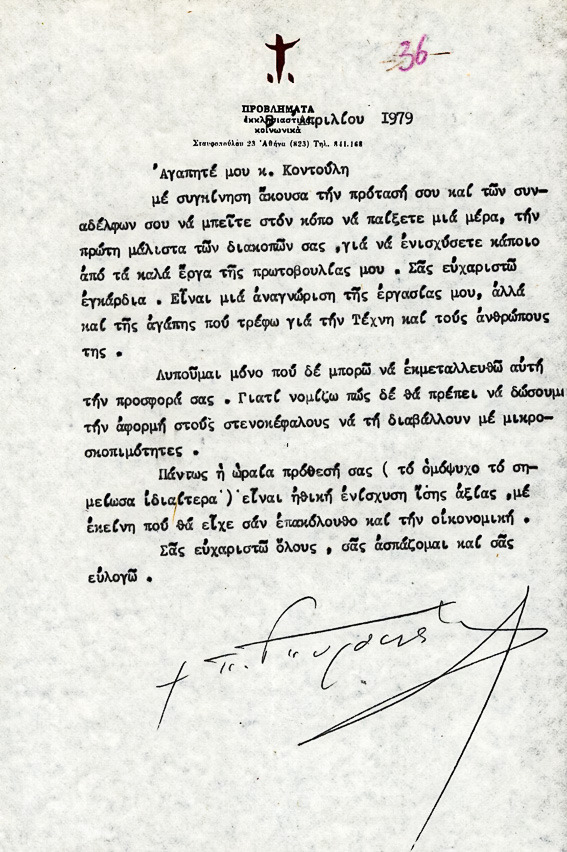 36
ΠΡΟΒΛΗΜΑΤΑ
ἐκκλησιαστικά
κοινωνικά
Ἀπριλίου 1979
Σταυροπούλου 23 Ἀθήνα (823) Τηλ. 841.168
Ἀγαπητέ μου κ. Κοντούλη
μέ συγκίνηση ἄκουσα τήν πρότασή σου καί τῶν συν-
αδέλφων σου νά μπεῖτε στόν κόπο νά παίξετε μιά μέρα, τήν
πρώτη μάλιστα τῶν διακοπῶν σας ,γιά νά ἐνισχύσετε κάποιο
ἀπό τά καλά ἔργα τῆς πρωτοβουλίας μου . Σᾶς εὐχαριστῶ
ἐγκάρδια . Εἶναι μιά ἀναγνώριση τῆς ἐργασίας μου, ἀλλά
καί τῆς ἀγάπης πού τρέφω γιά τήν Τέχνη καί τούς ἀνθρώπους
της .
Λυποῦμαι μόνο πού δέ μπορῶ νά ἐκμεταλλευθῶ αὐτή
τήν προσφορά σας . Γιατί νομίζω πώς δέ θά πρέπει νά δώσουμ
τήν ἀφορμή στούς στενοκέφαλους νά τή διαβάλλουν μέ μικρο-
σκοπιμότητες .
Πάντως ἡ ὡραία πρόθεσή σας ( τό ὁμόψυχο τό ση-
μείωσα ἰδιαίτερα ) εἶναι ἠθική ἐνίσχυση ἴσης ἀξίας ,μέ
ἐκείνη πού θά εἶχε σάν ἐπακόλουθο καί τήν οἰκονομική .
Σᾶς εὐχαριστῶ ὅλους , σᾶς ἀσπάζομαι καί σᾶς
εὐλογῶ .